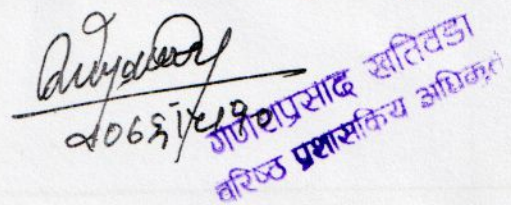 २०६९।५।१०
गणेशप्रसाद खतिवडा
वरिष्ठ प्रशासकिय अधिकृत